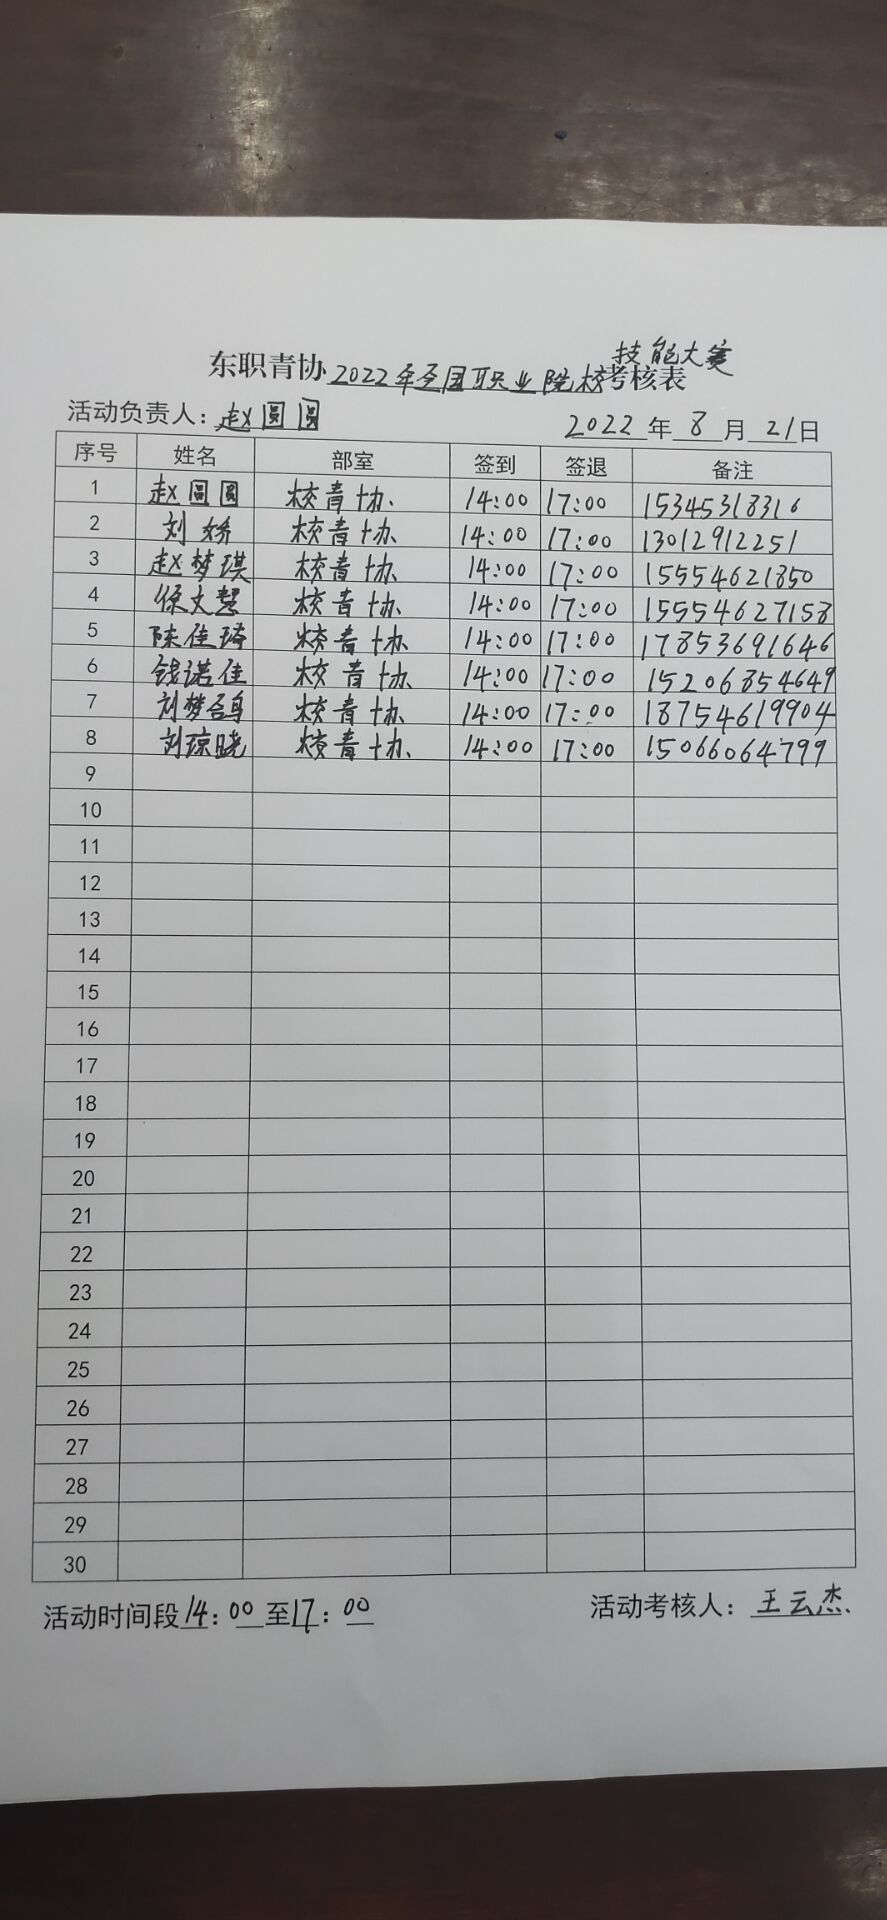 技能大赛
东职青协2022年全国职业院校考核表
活动负责人：赵圆圆 2022年8月21日
序号 姓名 部室 签到 签退 备注
1 赵圆圆 校青协 14:00 17:00 15345318316
2 刘娇 校青协 14:00 17:00 13012912251
3 赵梦琪 校青协 14:00 17:00 15554621850
4 徐文慧 校青协 14:00 17:00 15554627158
5 陈佳琦 校青协 14:00 17:00 17853691646
6 钱诺佳 校青协 14:00 17:00 15206854649
7 刘梦 校青协 14:00 17:00 18754619904
8 刘琼晓 校青协 14:00 17:00 15066064799
9
10
11
12
13
14
15
16
17
18
19
20
21
22
23
24
25
26
27
28
29
30
活动时间段14:00至17:00 活动考核人：王云杰